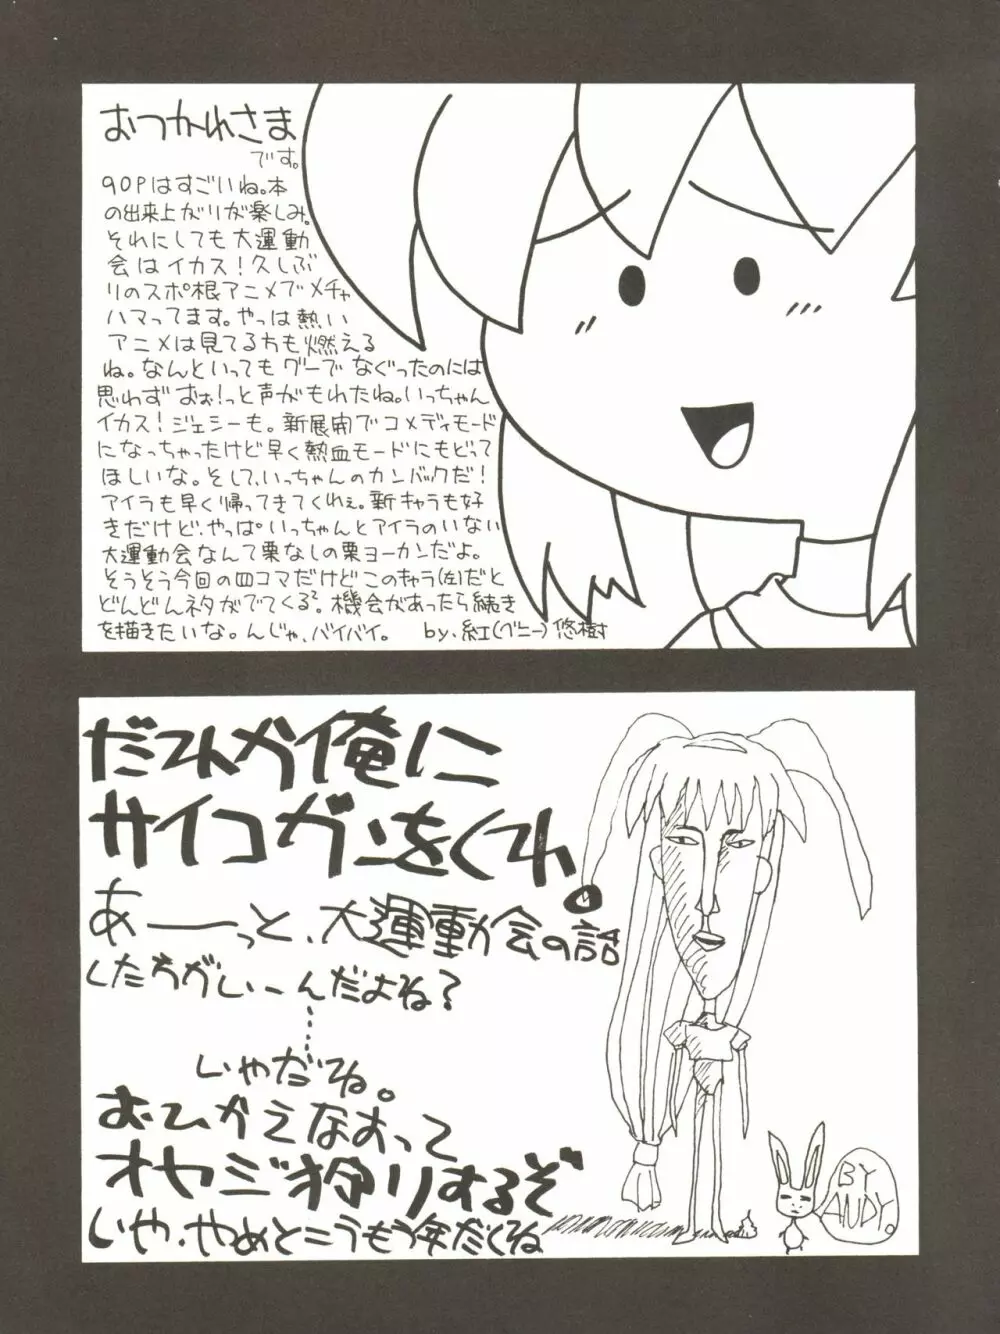 おつかれさま
です。
90Pはすごいね。本
の出来上がりが楽しみ。
それにしても大運動
会はイカス！久しぶ
りのスポ根アニメでメチャ
ハマってます。やっぱ熱い
アニメは見てる方も燃える
ね。なんといってもグーでなぐったのには
思わずおぉ！っと声がもれたね。いっちゃん
イカス！ジェシーも。新展開でコメディモード
になっちゃったけど早く熱血モードにもどって
ほしいな。そして、いっちゃんのカンバックだ！
アイラも早く帰ってきてくれぇ。新キャラも好
きだけど、やっぱいっちゃんとアイラのいない
大運動会なんて栗なしの栗ヨーカンだよ。
そうそう今回の四コマだけどこのキャラ(左)だと
どんどんネタがでてくる²。機会があったら続き
を描きたいな。んじゃ、バイバイ。 by.紅(ベニー)悠樹
だれか俺に
サイコガンをくれ。
あーーっと、大運動会の話
したちがいーんだよね？
……
いやだね。
おひかえなすって
オヤジ狩りするぞ
いや、やめとこうもう年だくね
BY
ANDY。